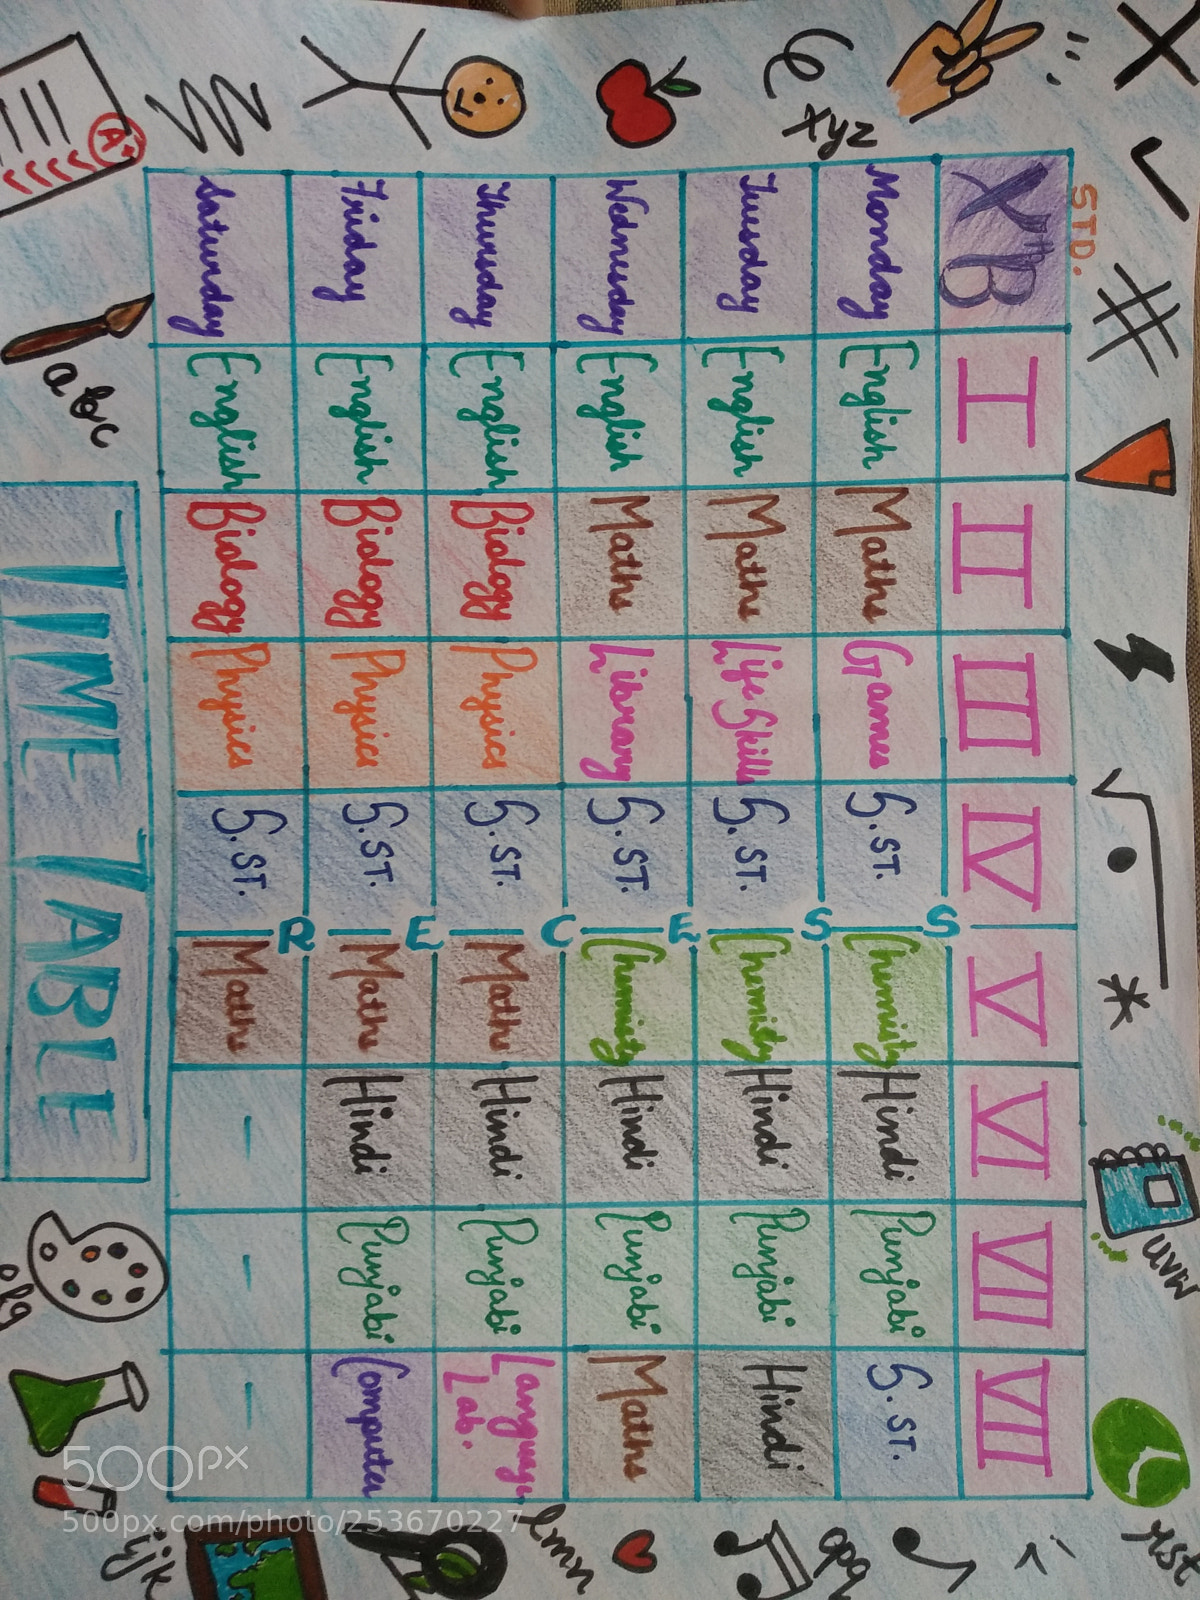 STD.
uvw
rst
XyZ
XᵗʰB I II III IV V VI VII VII
Monday English Maths Games S.ST. Chemisty Hindi Punjabi S.ST.
Tuesday English Maths Life Skills S.ST. Chemisty Hindi Punjabi Hindi
Wednesday English Maths Library S.ST. Chemisty Hindi Punjabi Maths
Thursday English Biology Physics S.ST. Maths Hindi Punjabi Language Lab.
Friday English Biology Physics S.ST. Maths Hindi Punjabi Computer
Saturday English Biology Physics S.ST. Maths - - -
RECESS
opq
lmn
A+
abc
TIME TABLE
ijk
500px
500px.com/photo/253670227